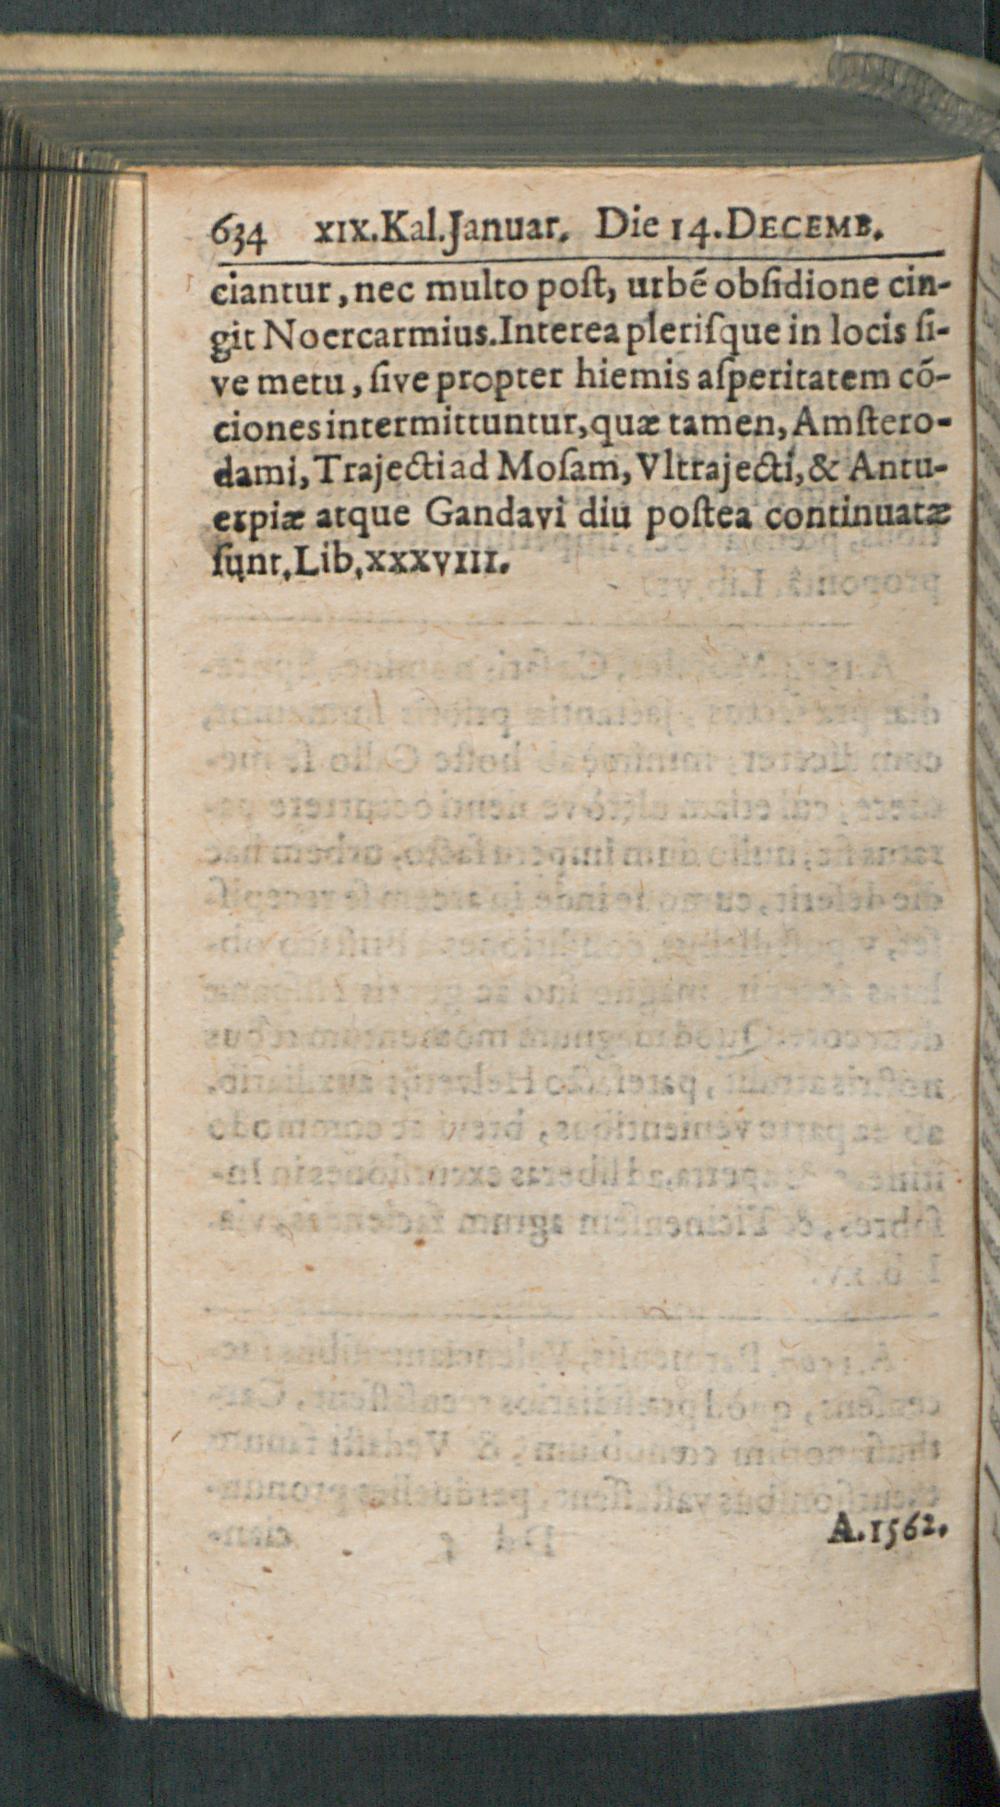 634 XIX.Kal.Januar. Die 14.DECEMB.
ciantur, nec multo poſt, urbẽ obſidione cin-
git Noercarmius.Interea pleriſque in locis ſi-
ve metu, ſive propter hiemis aſperitatem cõ-
ciones intermittuntur, quæ tamen, Amſtero-
dami, Trajecti ad Moſam, Vltrajecti, & Antu-
erpiæ atque Gandavi diu poſtea continuatæ
ſunt. Lib. XXXVIII.
A.1562.